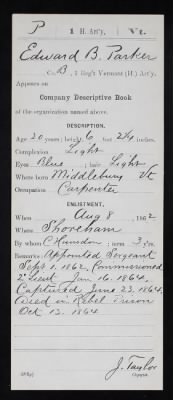 P 1 H. Art'y, Vt.
Edward B. Parker
Co. B, 1 Reg't Vermont (H) Art'y.
Appears on
Company Descriptive Book
of the organization named above.
DESCRIPTION.
Age 20 years; height 6 feet 2¼ inches.
Complexion Light
Eyes Blue; hair Light
Where born Middlebury Vt
Occupation Carpenter
ENLISTMENT.
When Aug 8, 1862
Where Shoreham
By whom C Hunsdon; term 3 y'rs.
Remarks: Appointed Sergeant
Sept 1. 1862, Commissioned
2" Lieut Jan 16. 1864,
Captured June 23. 1864
Died in Rebel Prison
Oct 13. 1864
J. Taylor
Copyist.